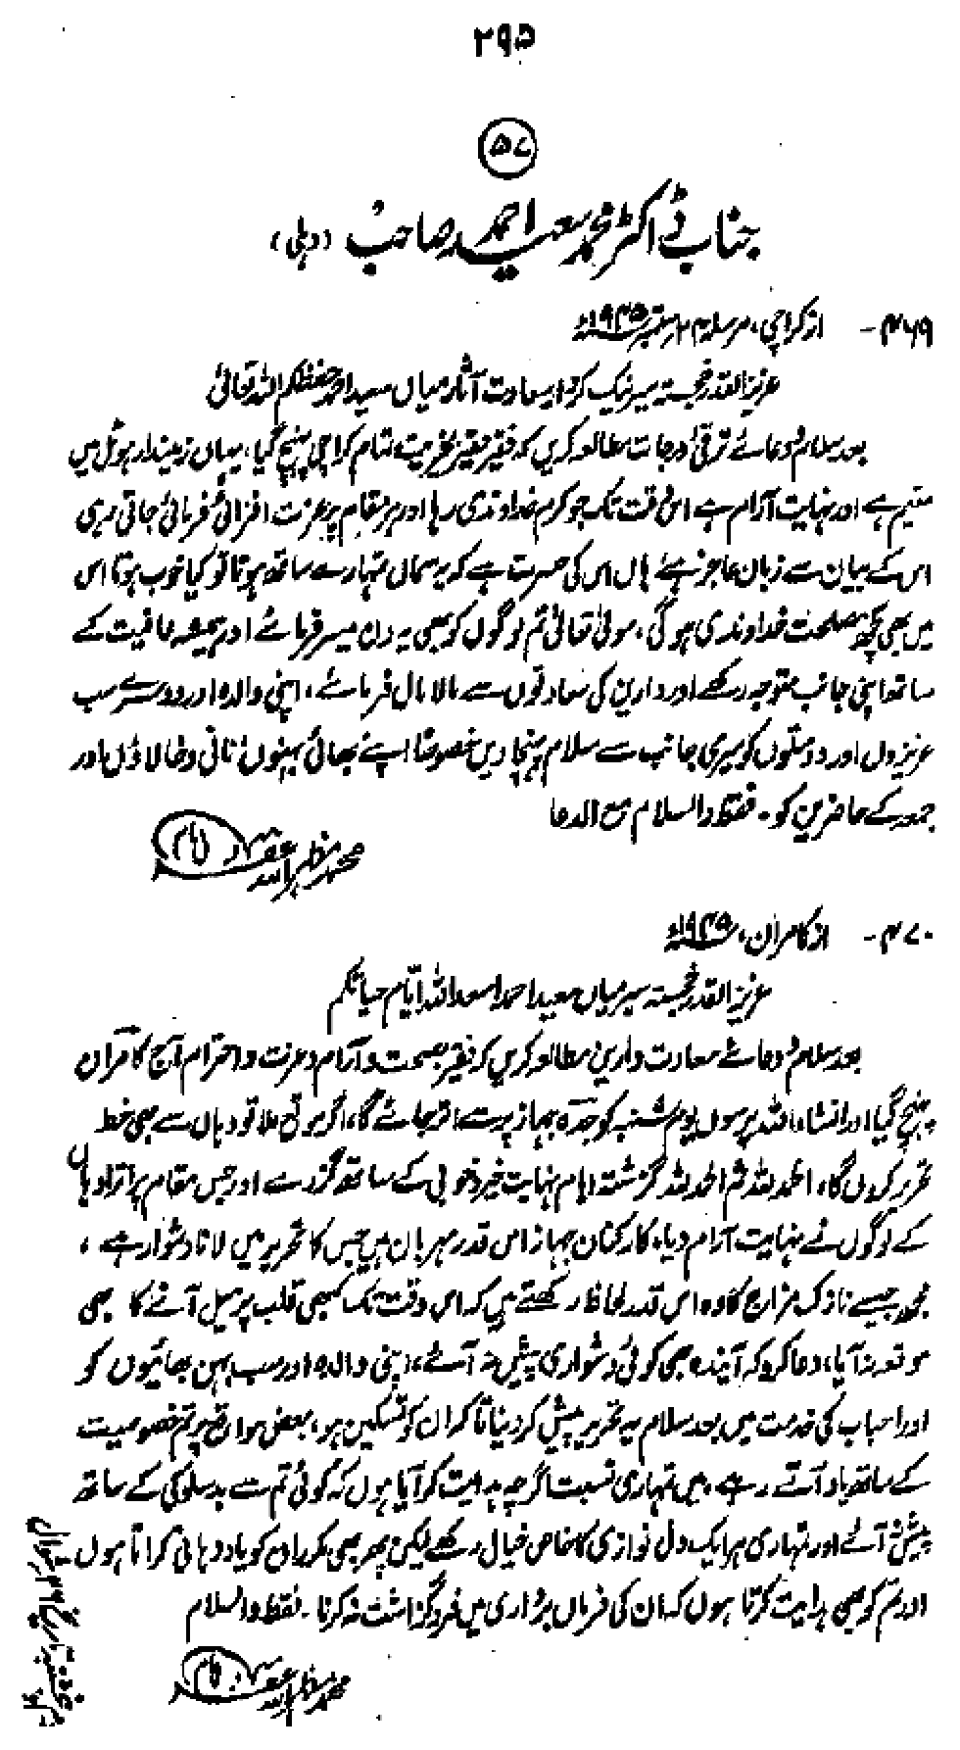 ۲۹۵
۵۷
جناب ڈاکٹر محمد سعید احمد صاحب (دہلی)
۴۶۹- از کراچی، مرسلہ ۲۴ ستمبر ۱۹۴۵ء
عزیز القدر خجستہ سیر نیک کردار سعادت آثار میاں سعید احمد حفظکم اللہ تعالیٰ
بعد سلام و دعائے ترقی درجات مطالعہ کریں کہ فقیر حقیر بخیریت تمام کراچی پہنچ گیا، یہاں زمیندار ہوٹل میں
مقیم ہے اور نہایت آرام ہے اس وقت تک جو کرم خداوندی رہا اور ہر مقام پر عزت افزائی فرمائی جاتی رہی
اس کے بیان سے زبان عاجز ہے ہاں اس کی حسرت ہے کہ یہ سماں تمہارے ساتھ ہوتا تو کیا خوب ہوتا اس
میں بھی کچھ مصلحت خداوندی ہوگی، مولیٰ تعالیٰ تم لوگوں کو بھی یہ دن میسر فرمائے اور ہمیشہ عافیت کے
ساتھ اپنی جانب متوجہ رکھے اور دارین کی سعادتوں سے مالا مال فرمائے، اپنی والدہ اور دوسرے سب
عزیزوں اور دوستوں کو میری جانب سے سلام پہنچا دیں خصوصاً اپنے بھائی بہنوں نانی و خالاؤں اور
جمعہ کے حاضرین کو۔ فقط والسلام مع الدعا
محمد مظہر اللہ عفرلہ امام
۴۷۰- از کامران، ۱۹۴۵ء
عزیز القدر خجستہ سیر میاں سعید احمد اسعد اللہ ایام حیاتکم
بعد سلام و دعائے سعادت دارین مطالعہ کریں کہ فقیر بصحت و آرام و عزت و احترام آج کامران
پہنچ گیا اور انشاء اللہ پرسوں یوم شنبہ کو جدہ جہاز پر سے اتر جائے گا، اگر موقع ملا تو وہاں سے بھی خط
تحریر کروں گا، الحمد للہ ثم الحمد للہ گزشتہ ایام نہایت خیر و خوبی کے ساتھ گزرے اور جس مقام پر اترا وہاں
کے لوگوں نے نہایت آرام دیا، کارکنان جہاز اس قدر مہربان ہیں جس کا تحریر میں لانا دشوار ہے،
مجھ جیسے نازک مزاج کا وہ اس قدر لحاظ رکھتے ہیں کہ اس وقت تک کبھی قلب پر میل آنے کا بھی
موقعہ نہ آیا، دعا کرو کہ آیندہ بھی کوئی دشواری پیش نہ آئے، اپنی والدہ اور سب بہن بھائیوں کو
اور احباب کی خدمت میں بعد سلام یہ تحریر پیش کر دینا تاکہ ان کو تسکین ہو، بعض مواقع پر تم خصوصیت
کے ساتھ یاد آتے رہے، میں تمہاری نسبت اگرچہ ہدایت کر آیا ہوں کہ کوئی تم سے بدسلوکی کے ساتھ
پیش نہ آئے اور تمہاری ہر ایک دل نوازی کا خاص خیال رکھے لیکن پھر بھی مکرر ان کو یاد دہانی کراتا ہوں
اور تم کو بھی ہدایت کرتا ہوں کہ ان کی فرماں برداری میں فروگزاشت نہ کرنا۔ فقط والسلام
محمد مظہر اللہ عفرلہ امام